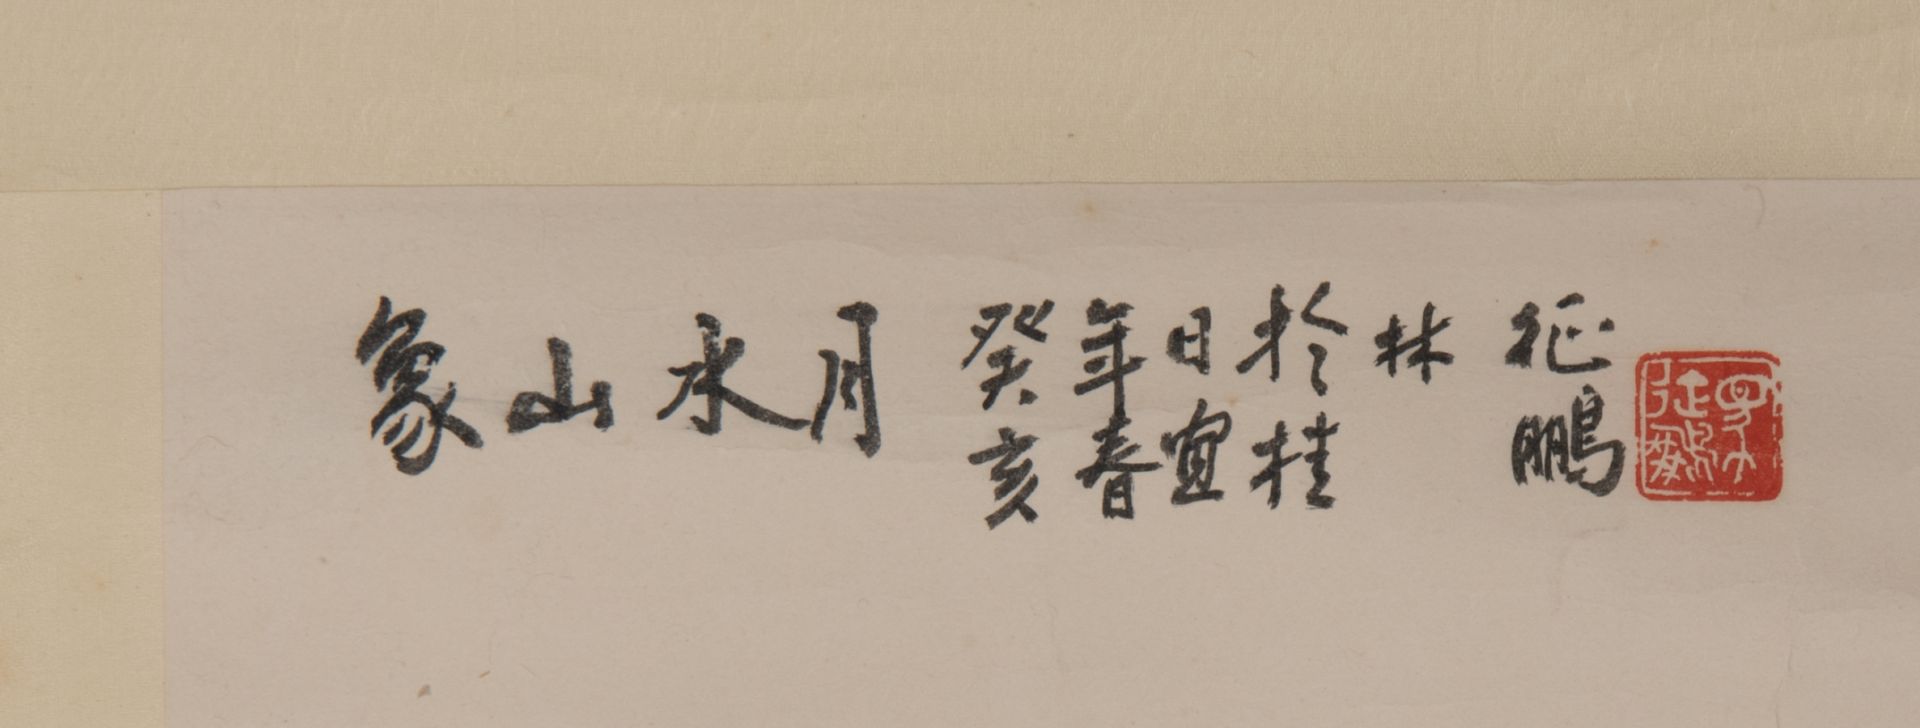 象山水月
癸亥年春日寅於桂林
征鹏